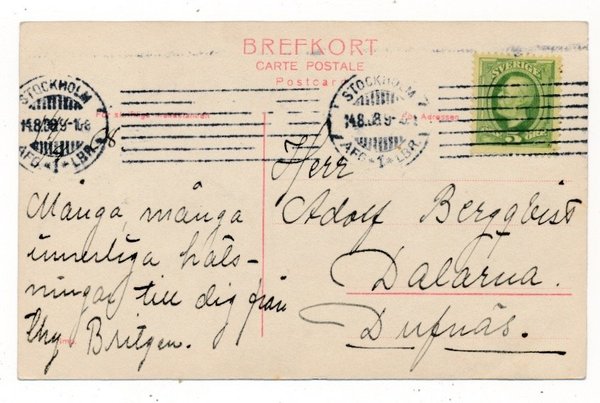 BREFKORT
CARTE POSTALE
Postcard
SVERIGE
5
STOCKHOLM
14.8.
9-10
AFG 1 LBR
STOCKHOLM
14.8.
AFG 1 LBR
Adressen
Herr
Adolf Bergqvist
Dalarna.
Dufnäs.
Många, många
innerliga häls-
ningar till dig från
Britgen.